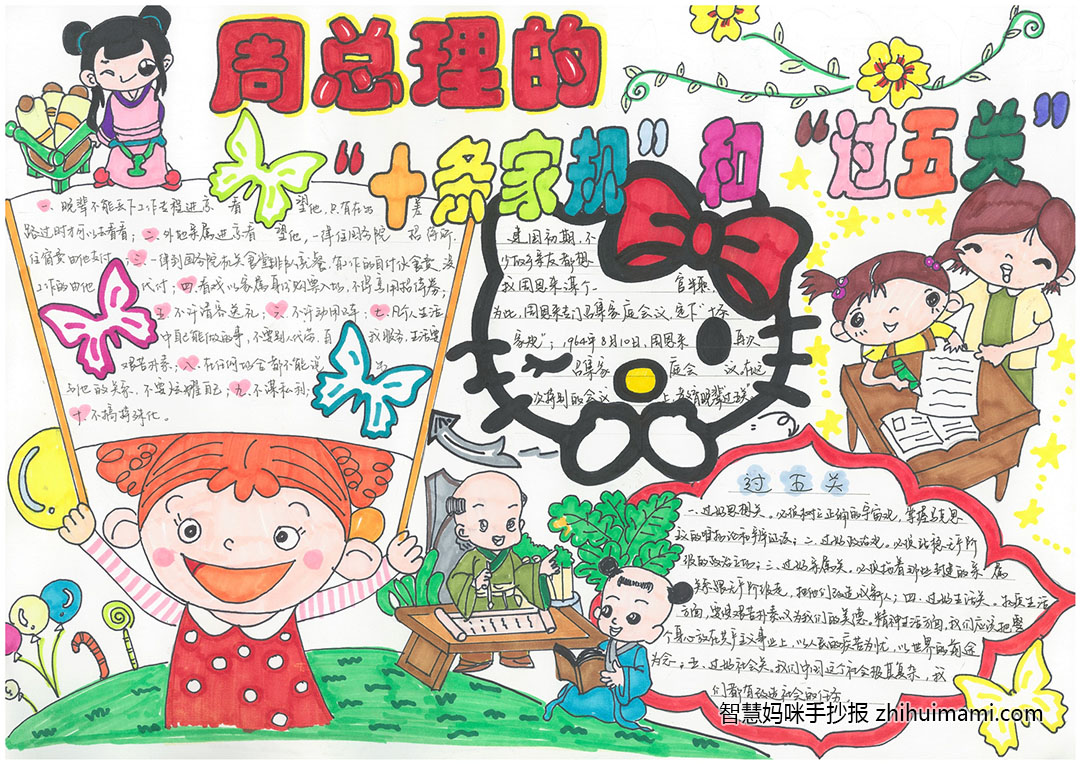 周总理的
“十条家规”和“过五关”
一、晚辈不能丢下工作专程进京看望他,只有在出差
路过时才可以去看看;二、外地亲属进京看望他,一律住国务院招待所,
住宿费由他支付;三、一律到国务院机关食堂排队就餐,有工作的自付伙食费,没
工作的由他代付;四、看戏以家属身份购票入场,不得享用招待券;
五、不许请客送礼;六、不许动用公车;七、凡个人生活
中自己能做的事,不要别人代劳,自我服务,生活要
艰苦朴素;八、在任何场合都不能说出
与他的关系,不要炫耀自己;九、不谋私利;
十、不搞特殊化。
建国初期,不
少的亲友都想
找周恩来谋个一官半职
为此,周恩来专门召集家庭会议,定下“十条
家规”;1964年8月10日,周恩来再次
召集家庭会议在这
次特别的会议上
过五关
一、过好思想关。必须树立正确的宇宙观,掌握马克思主
义的唯物论和辩证法;二、过好政治关。必须站稳无产阶
级的政治立场;三、过好亲属关。必须
四、过好生活关。物质生活
方面,要使艰苦朴素成为我们的美德。精神生活方面,我们应该把整
个身心放在共产主义事业上,以人民的疾苦为忧,以世界的前途
为念。五、过好社会关。我们中国这个社会极其复杂,我
们都有改造社会的任务
智慧妈咪手抄报 zhihuimami.com